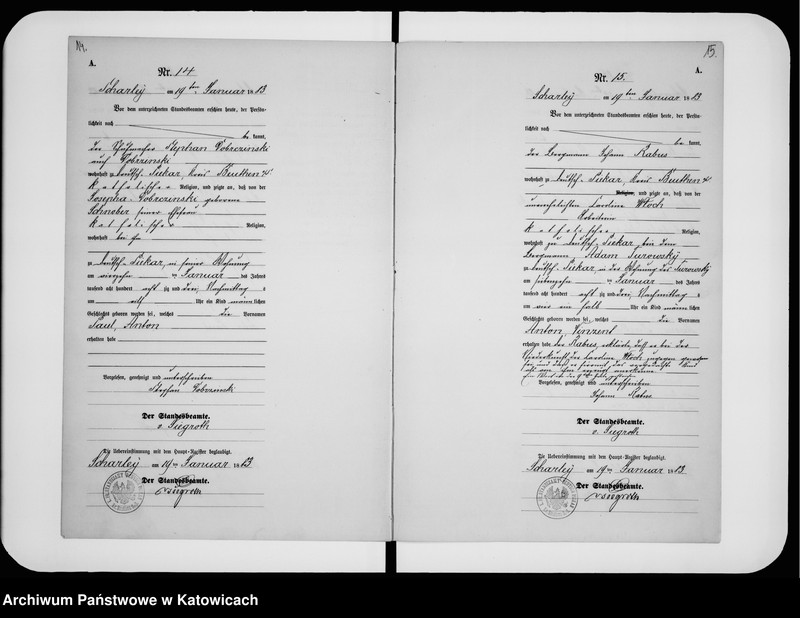 14.
A.
Nr. 14
Scharley am 19ten Januar 1883
Vor dem unterzeichneten Standesbeamten erschien heute, der Persön-
lichkeit nach
be kannt,
der Stephan Dobrzinski
auch Dobrzinski
wohnhaft zu Deutsch-Piekar, Kreis Beuthen
katholischer Religion, und zeigte an, daß von der
Josepha Dobrzinski geborene
Schnober seiner Ehefrau
katholischer Religion,
wohnhaft bei ihm
zu Deutsch-Piekar, in seiner Wohnung
am vierzehn ten Januar des Jahres
tausend acht hundert acht zig und drei, Nachmittag s
um Uhr ein Kind männlichen
Geschlechts geboren worden sei, welches die Vornamen
Paul, Anton
erhalten habe
Vorgelesen, genehmigt und unterschrieben
Stephan Dobrzinski
Der Standesbeamte.
v. Siegroth
Die Uebereinstimmung mit dem Haupt-Register beglaubigt.
Scharley am 19ten Januar 1883
Der Standesbeamte.
v. Siegroth
15.
A.
Nr. 15.
Scharley am 19ten Januar 1883
Vor dem unterzeichneten Standesbeamten erschien heute, der Persön-
lichkeit nach
be kannt,
der Bergmann Johann Rabus
wohnhaft zu Deutsch-Piekar, Kreis Beuthen
Religion, und zeigte an, daß von der
unverehelichten Caroline Wloch
katholischer Religion,
wohnhaft zu Deutsch-Piekar, bei dem
Bergmann Adam Turowsky
zu Deutsch-Piekar in der Wohnung des Turowsky
am ten Januar des Jahres
tausend acht hundert acht zig und drei, Nachmittag s
um vier ein halb Uhr ein Kind männlichen
Geschlechts geboren worden sei, welches die Vornamen
Anton Vinzent
erhalten habe. Der Rabus, erklärte, daß er bei der
Niederkunft der Caroline Wloch zugegen gewesen
Vorgelesen, genehmigt und unterschrieben
Johann Rabus
Der Standesbeamte.
v. Siegroth
Die Uebereinstimmung mit dem Haupt-Register beglaubigt.
Scharley am 19ten Januar 1883
Der Standesbeamte.
v. Siegroth
Archiwum Państwowe w Katowicach